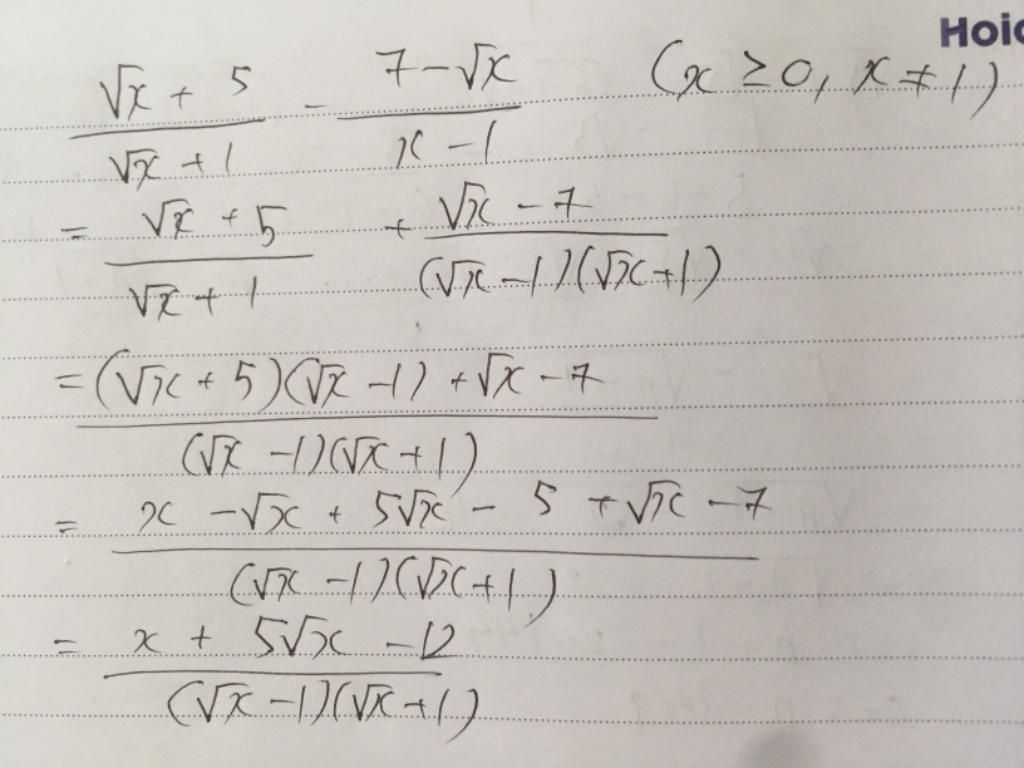 Hoic
(√x + 5)/(√x + 1) - (7 - √x)/(x - 1) (x ≥ 0, x ≠ 1)
= (√x + 5)/(√x + 1) + (√x - 7)/((√x - 1)(√x + 1))
= ((√x + 5)(√x - 1) + √x - 7)/((√x - 1)(√x + 1))
= (x - √x + 5√x - 5 + √x - 7)/((√x - 1)(√x + 1))
= (x + 5√x - 12)/((√x - 1)(√x + 1))